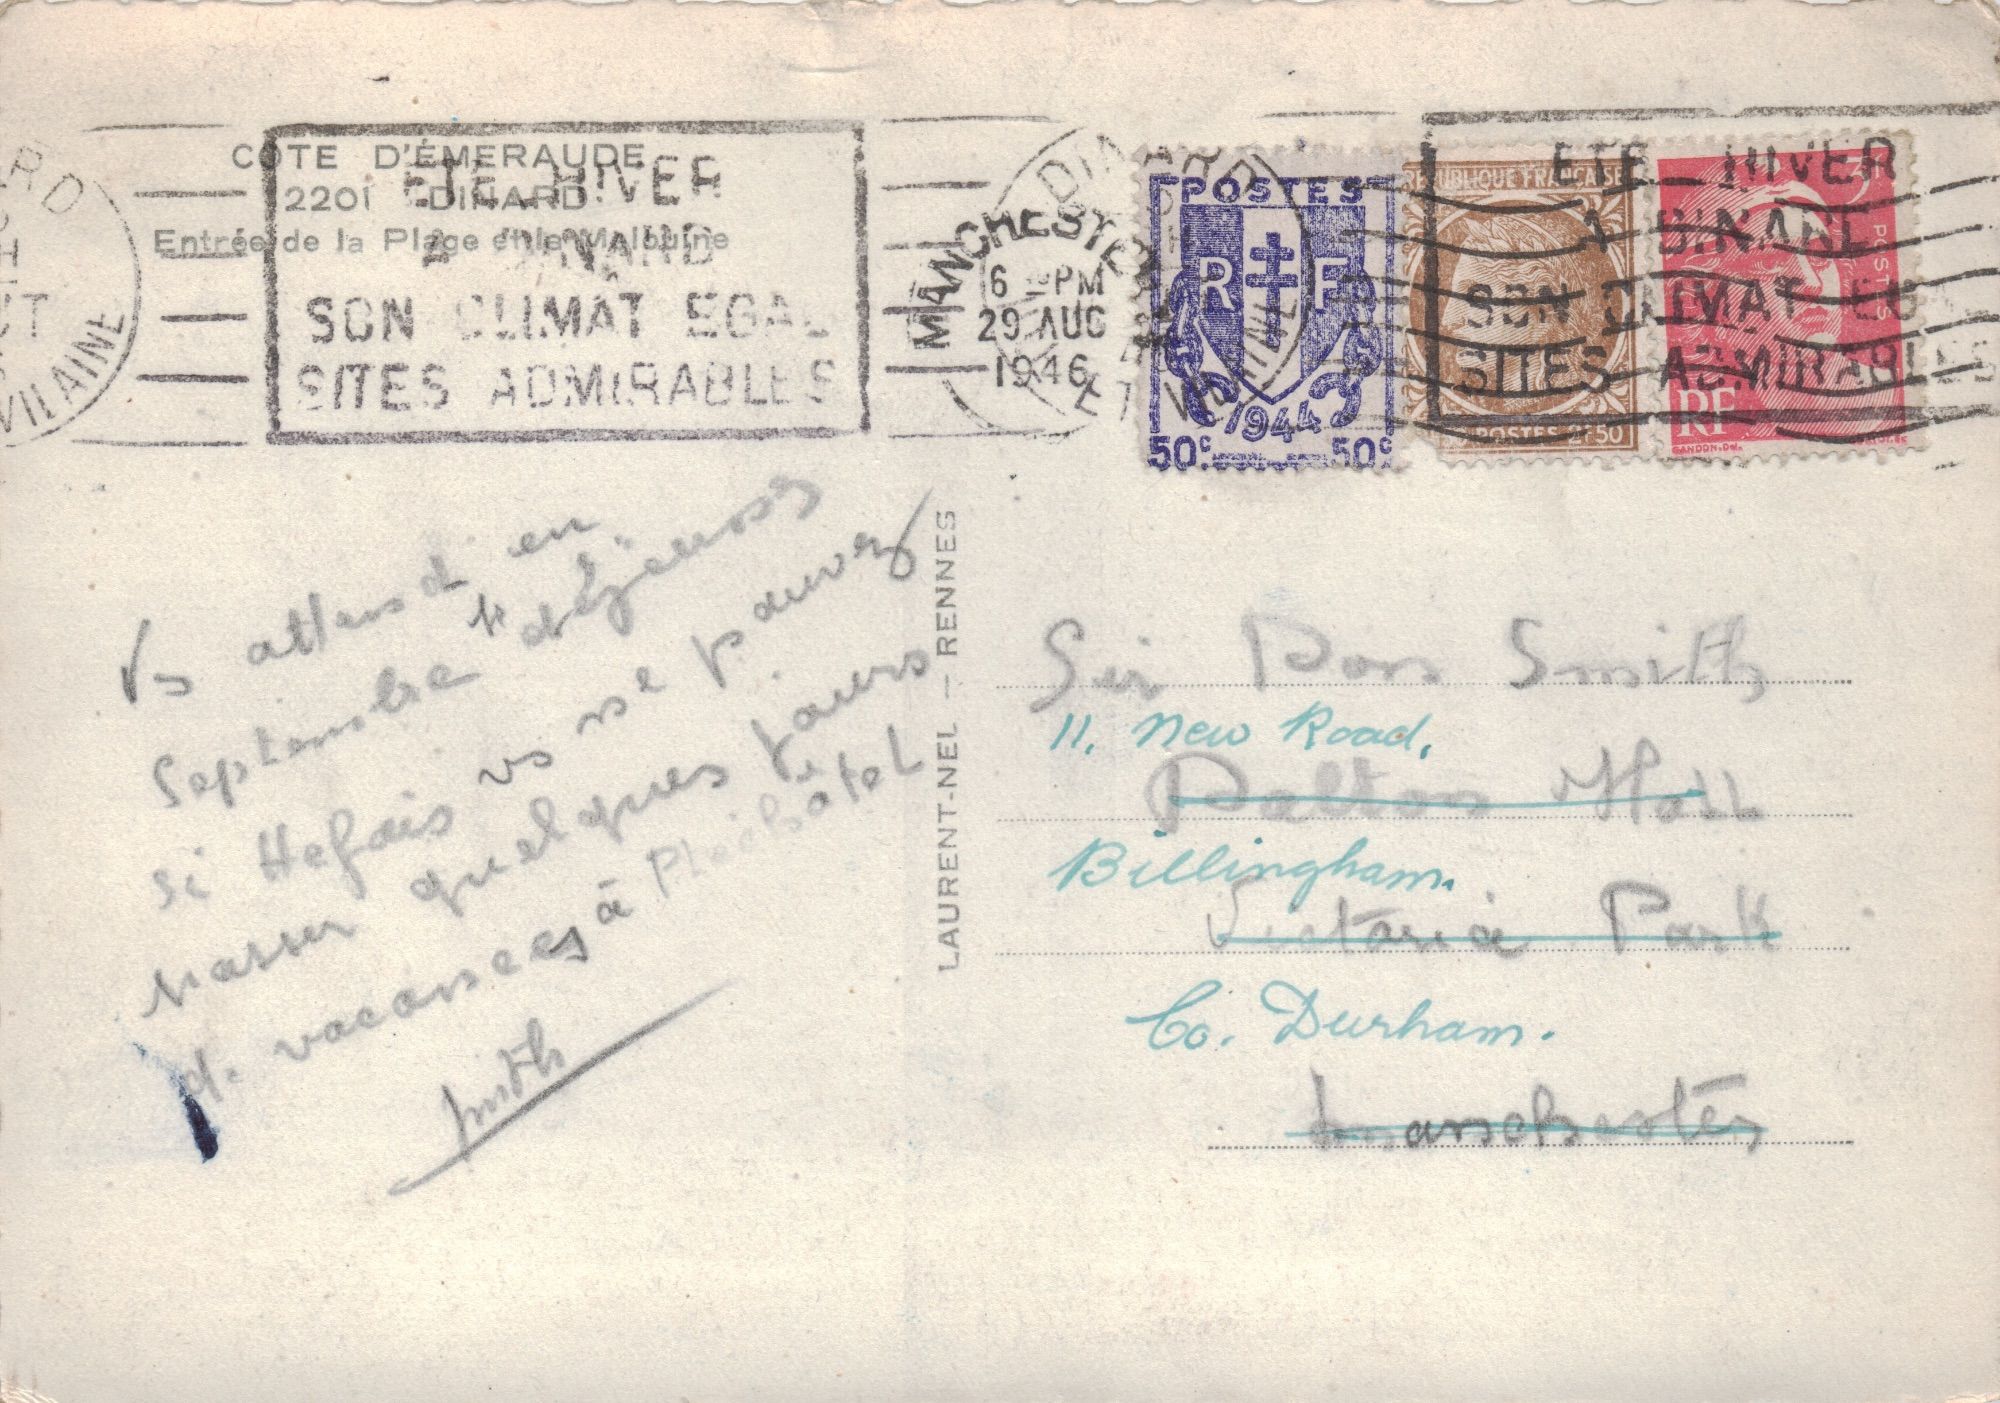 COTE D'ÉMERAUDE
2201 DINARD
Entrée de la Plage et la Malouine
ETE HIVER
A DINARD
SON CLIMAT EGAL
SITES ADMIRABLES
VILAINE
MANCHESTER
6 PM
29 AUG
1946
DINARD
ET VILAINE
POSTES
RF
1944
50c 50c
REPUBLIQUE FRANÇAISE
POSTES 2F50
3F
POSTES
RF
GANDON.Del.
ETE HIVER
A DINARD
SON CLIMAT EG
SITES ADMIRABLES
Vs attend en
Septembre
si vs ne pouvez
passer quelques jours
de vacances à Pléchâtel
LAURENT-NEL — RENNES
Sir Smith
11. New Road.
Dalton Hall
Billingham.
Victoria Park
Co. Durham.
Manchester